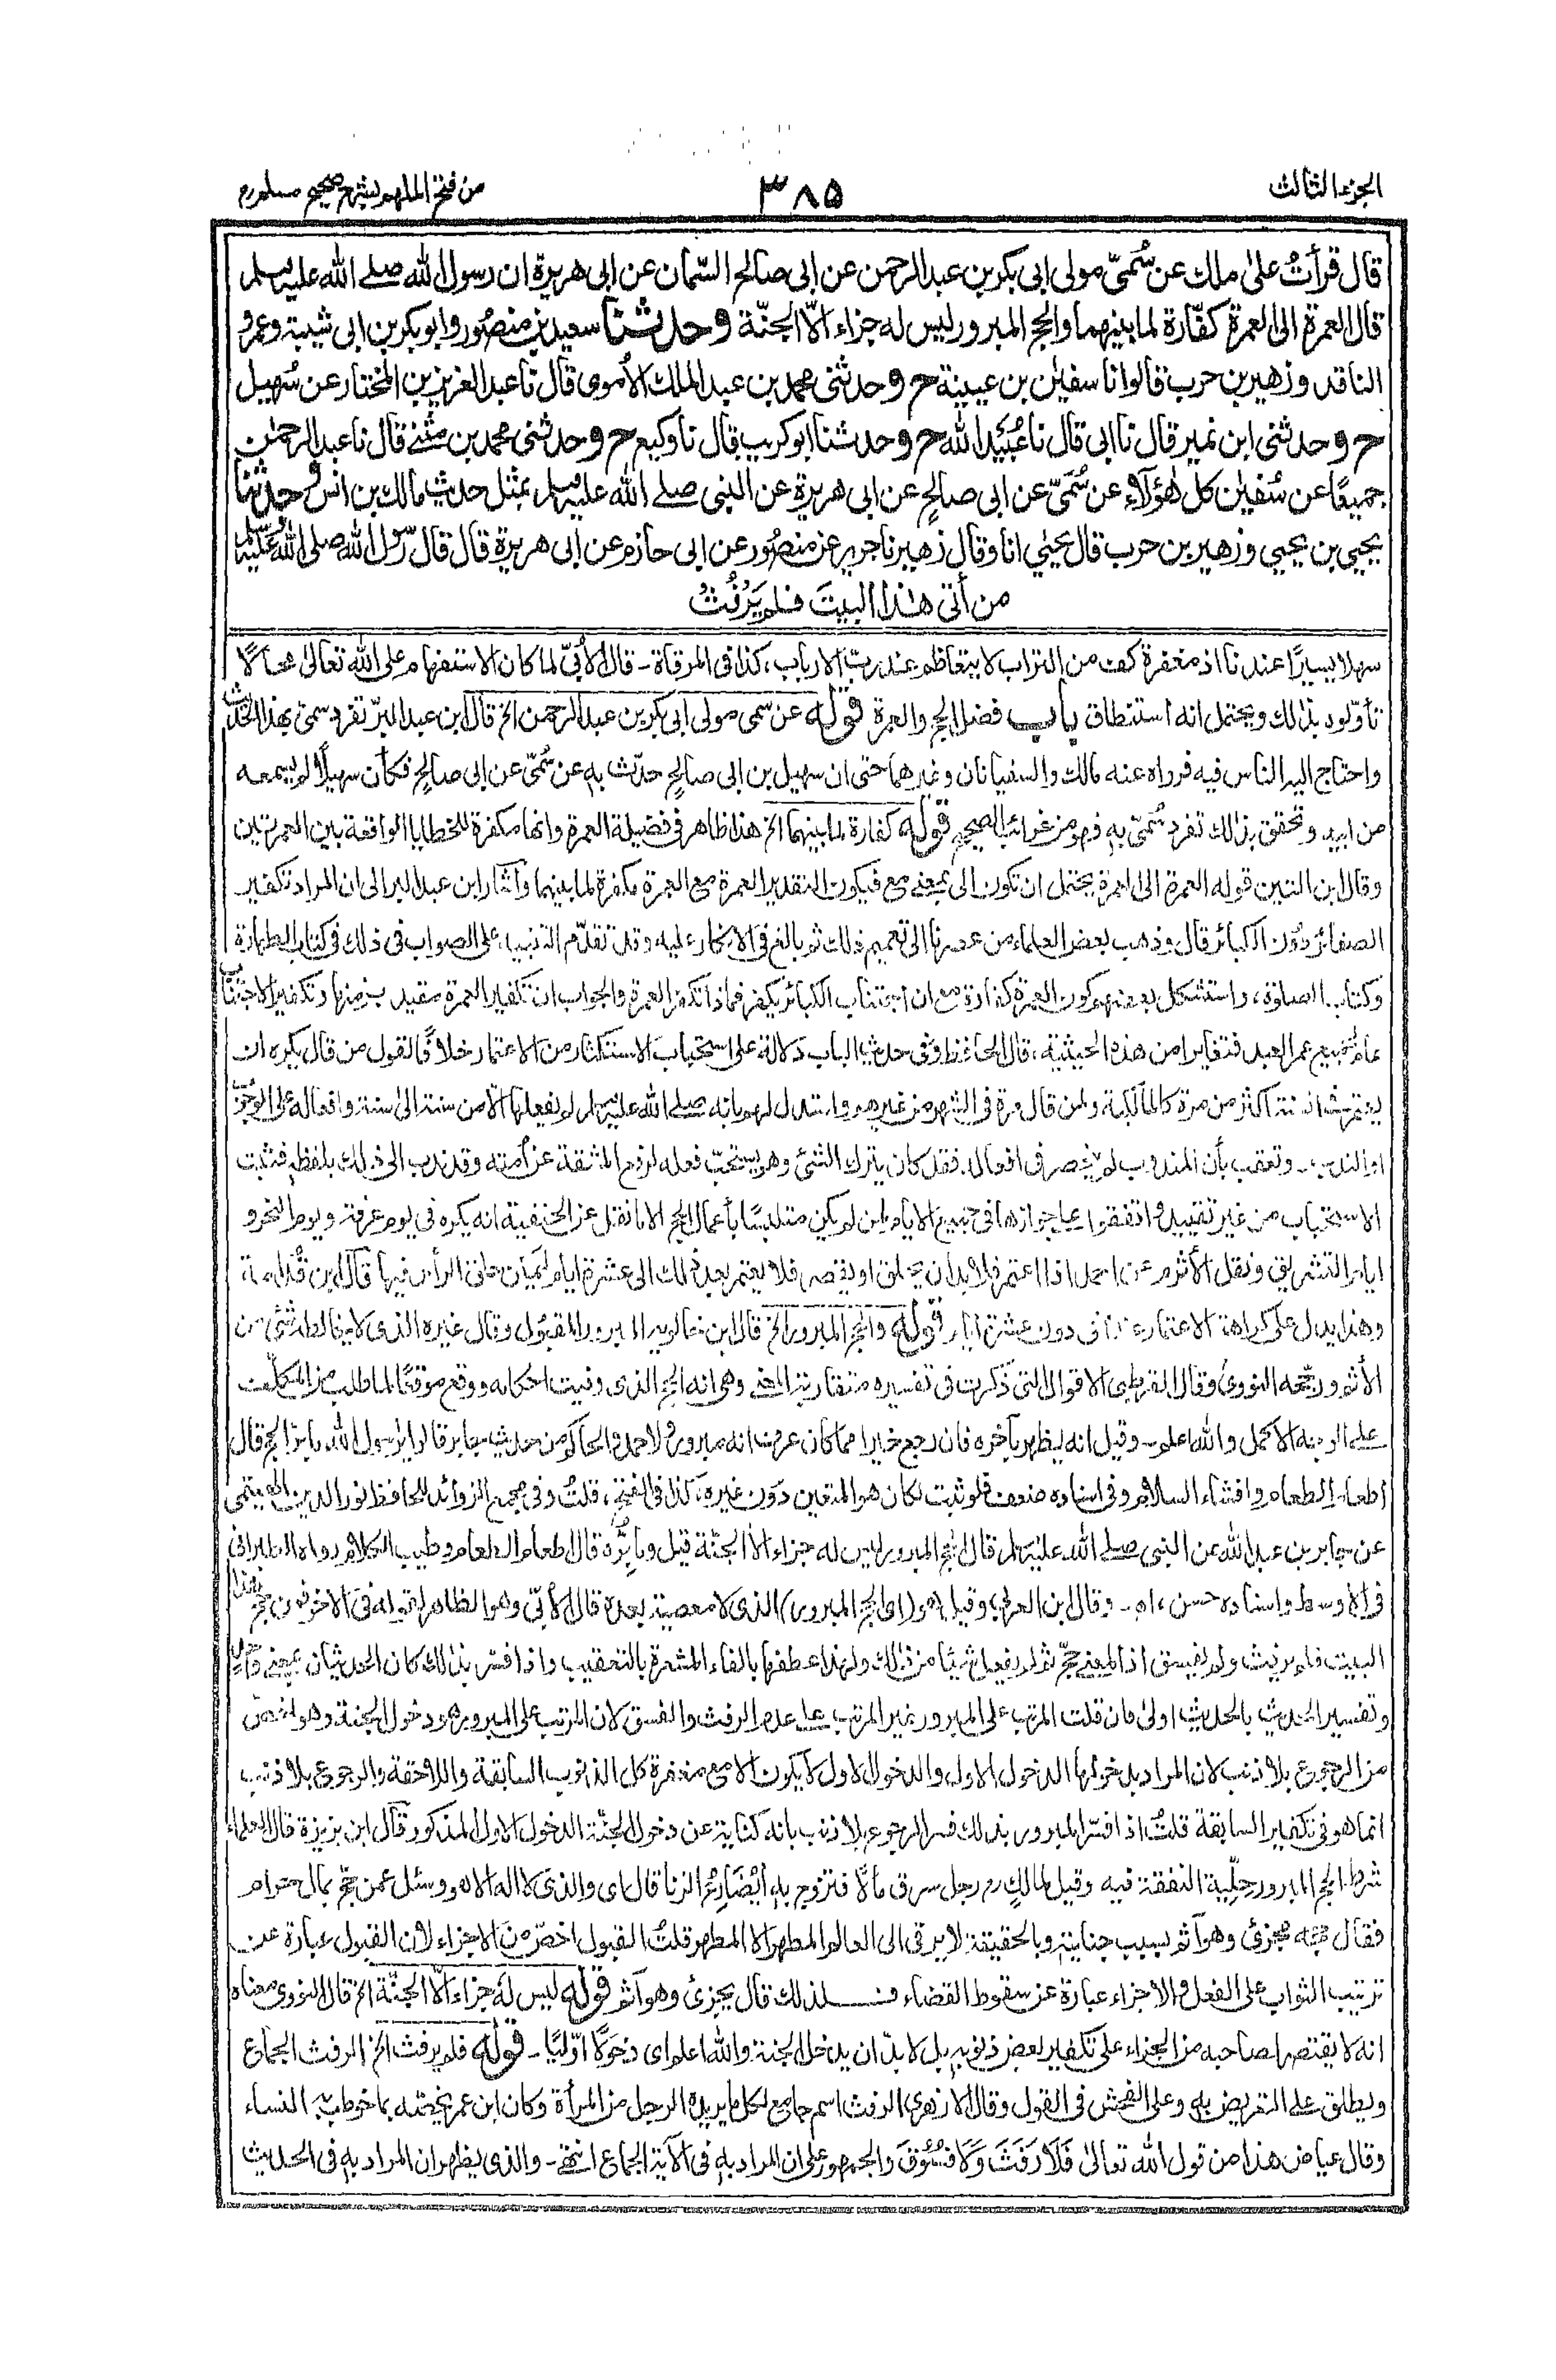 الجزء الثالث
٣٨٥
من فتح الملهم بشرح صحيح مسلم رم
قال قرأتُ على ملك عن سُمَىّ مولى ابى بكر بن عبد الرحمن عن ابى صالح السّمان عن ابى هريرة ان رسول الله صلے الله عليه وسلم
قال العمرة الى العمرة كفّارة لما بينهما والحج المبرور ليس له جزاء الّا الجنّة وحدثنا سعيد بن منصُور وابو بكر بن ابى شيبة وعمرو
الناقد وزهير بن حرب قالوا نا سفيٰن بن عيينة ح وحدثنى محمد بن عبد الملك الاُموى قال نا عبد العزيز بن المختار عن سُهيل
ح وحدثنى ابن نمير قال نا ابى قال نا عُبَيد الله ح وحدثنا ابو كريب قال نا وكيع ح وحدثنى محمد بن مثنے قال نا عبد الرحمٰن
جميعًا عن سُفيٰن كل هٰؤلاء عن سُمَىّ عن ابى صالحٍ عن ابى هريرة عن النبى صلے الله عليه وسلم بمثل حديث مالك بن انس وحدثنا
يحيي بن يحيي وزهير بن حرب قال يحيٰي انا وقال زهير نا جرير عن منصُور عن ابى حازم عن ابى هريرة قال قال رسول الله صلى الله عليه وسلم
من أتى هٰذا البيتَ فلم يَرْفُثْ
سهلا يسيرًا عندنا اذ مغفرة كف من التراب لا يتعاظم عند ربّ الارباب، كذا فى المرقاة - قال الاُبىّ لما كان الاستفهام على الله تعالى محالًا
تأوّلوه بذلك ويحتمل انه استنطاق باب فضل الحج والعمرة قوله عن سمى مولى ابى بكر بن عبد الرحمن الخ قال ابن عبد البرّ تفرد سمى بهذا الحديث
واحتاج اليه الناس فيه فرواه عنه مالك والسفيانان وغيرهما حتى ان سهيل بن ابى صالحٍ حدّث به عن سُمىّ عن ابى صالحٍ فكأن سهيلًا لم يسمعه
من ابيه، وتحقق بذلك تفرد سُمىّ به فهو من غرائب الصحيح قوله كفارة لما بينهما الخ هذا ظاهر فى فضيلة العمرة وانها مكفرة للخطايا الواقعة بين العمرتين
وقال ابن التين قوله العمرة الى العمرة يحتمل ان تكون الى بمعنے مع فيكون التقدير العمرة مع العمرة مكفرة لما بينهما وأشار ابن عبد البر الى ان المراد تكفير
الصغائر دُون الكبائر قال وذهب بعض العلماء من عصرنا الى تعميم ذلك ثم بالغ فى الانكار عليه وقد تقدّم التنبيه على الصواب فى ذلك فى كتاب الطهارة
وكتاب الصلٰوة، واستشكل بعضهم كون العمرة كفارة مع ان اجتناب الكبائر يكفر فماذا تكفر العمرة والجواب ان تكفير العمرة مقيد بزمنها وتكفير الاجتناب
عام لجميع عمر العبد فتغايرا من هذه الحيثية، قال الحافظ وفى حديث الباب دلالة على استحباب الاستكثار من الاعتمار خلافًا لقول من قال يكره ان
يعتمر فى السنة اكثر من مرة كالمالكية ولمن قال مرة فى الشهر من غيرهم واستدل لهم بانه صلے الله عليه وسلم لم يفعلها الّا من سنة الى سنة وافعاله على الوجوب
او الندب - وتعقب بأن المندوب لم ينحصر فى افعاله فقد كان يترك الشئ وهو يستحبّ فعله لرفع المشقة عن أمته وقد ندب الى ذلك بلفظه فثبت
الاستحباب من غير تقييد واتفقوا على جوازها فى جميع الايام لمن لم يكن متلبسًا بأعمال الحج الا ما نقل عن الحنفية انه يكره فى يوم عرفة ويوم النحر و
ايام التشريق ونقل الأثرم عن احمد اذا اعتمر فلا بد ان يحلق او يقصر فلا يعتمر بعد ذلك الى عشرة ايام ليمكن حلق الرأس فيها قال ابن قُدامة،
وهذا يدل على كراهة الاعتمار عنده فى دون عشرة ايام قوله والحج المبرور الخ قال ابن خالويه المبرور المقبُول وقال غيره الذى لا يخالطه شئ من
الأثم ورجّحه النووى وقال القرطبى الاقوال التى ذكرت فى تفسيره متقاربة المعنے وهى انه الحج الذى وفيت احكامه ووقع موقعًا لما طلب من المكلّف
علے الوجه الاكمل والله اعلم - وقيل انه يظهر بآخره فان رجع خيرا مما كان عرف انه مبرور ولاحمد والحاكم من حديث جابر قالوا يا رسول الله ما برّ الحج قال
اطعام الطعام وافشاء السلام وفى اسناده ضعف فلو ثبت لكان هو المتعين دون غيره، كذا فى الفتح، قلتُ وفى مجمع الزوائد للحافظ نور الدين الهيثمى
عن جابر بن عبد الله عن النبى صلے الله عليه وسلم قال الحج المبرور ليس له جزاء الا الجنّة قيل وما برُّه قال اطعام الطعام وطيب الكلام رواه الطبرانى
فى الاوسط واسناده حسن، اه - وقال ابن العربى وقيل هو (اى الحج المبرور) الذى لا معصية بعده قال الاُبّى وهو الظاهر لقوله فى الاخر فمن حج هٰذا
البيت فلم يرفث ولم يفسق اذ المعنے حجّ ثم لم يفعل شيئًا من ذلك ولهذا عطفها بالفاء المشعرة بالتعقيب واذا فسّر بذلك كان الحديثان بمعنے واحد
وتفسير الحديث بالحديث اولىٰ فان قلت المرتب على المبرور غير المرتب على عدم الرفث والفسق لان المرتب على المبرور هو دخول الجنة وهو اخصّ
من الرجوع بلا ذنب لان المراد بدخولها الدخول الاول والدخول الاول لا يكون الا مع مغفرة كل الذنوب السابقة واللاحقة والرجوع بلا ذنب
انما هو فى تكفير السابقة قلتُ اذا فسّر المبرور بذلك فسر الرجوع بلا ذنب بانه كناية عن دخول الجنّة الدخول الاول المذكور قال ابن بزيزة قال العلماء
شرط الحج المبرور حلّية النفقة فيه وقيل لمالكٍ رم رجل سرق مالًا فتزوج به أيُضَارِعُ الزنا قال اى والذى لا اله الا هو وسئل عمن حجّ بمال حرام
فقال حجه مجزئ وهو آثم بسبب جنايته وبالحقيقة لا يرقى الى العالم المطهر الا المطهر قلتُ القبول اخصّ من الاجزاء لان القبول عبارة عن
ترتيب الثواب على الفعل والاجزاء عبارة عن سقوط القضاء فلذلك قال يجزئ وهو آثم قوله ليس له جزاء الّا الجنّة الخ قال النووى معناه
انه لا يقتصر لصاحبه من الجزاء على تكفير بعض ذنوبه بل لا بدّ ان يدخل الجنة والله اعلم اى دخولًا اوّليًا - قوله فلم يرفث الخ الرفث الجماع
ويطلق علے التعريض به وعلى الفحش فى القول وقال الازهرى الرفث اسم جامع لكل ما يريده الرجل من المرأة وكان ابن عمر يخصّه بما خوطب به النساء
وقال عياض هذا من قول الله تعالىٰ فَلَا رَفَثَ وَلَا فُسُوْقَ والجمهور على ان المراد به فى الآية الجماع انتهے - والذى يظهر ان المراد به فى الحديث